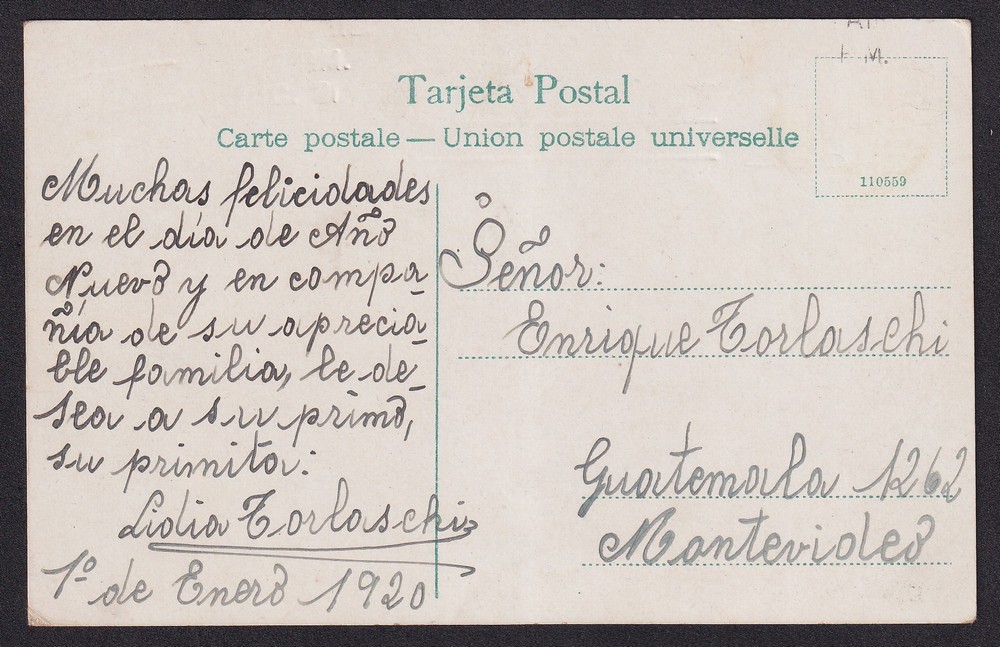 Tarjeta Postal
Carte postale — Union postale universelle
110559
Muchas felicidades
en el día de Año
Nuevo y en compa-
ñía de su aprecia-
ble familia, le de-
sea a su primo,
su primita:
Lidia Torlaschi
1º de Enero 1920
Señor:
Enrique Torlaschi
Guatemala 1262
Montevideo